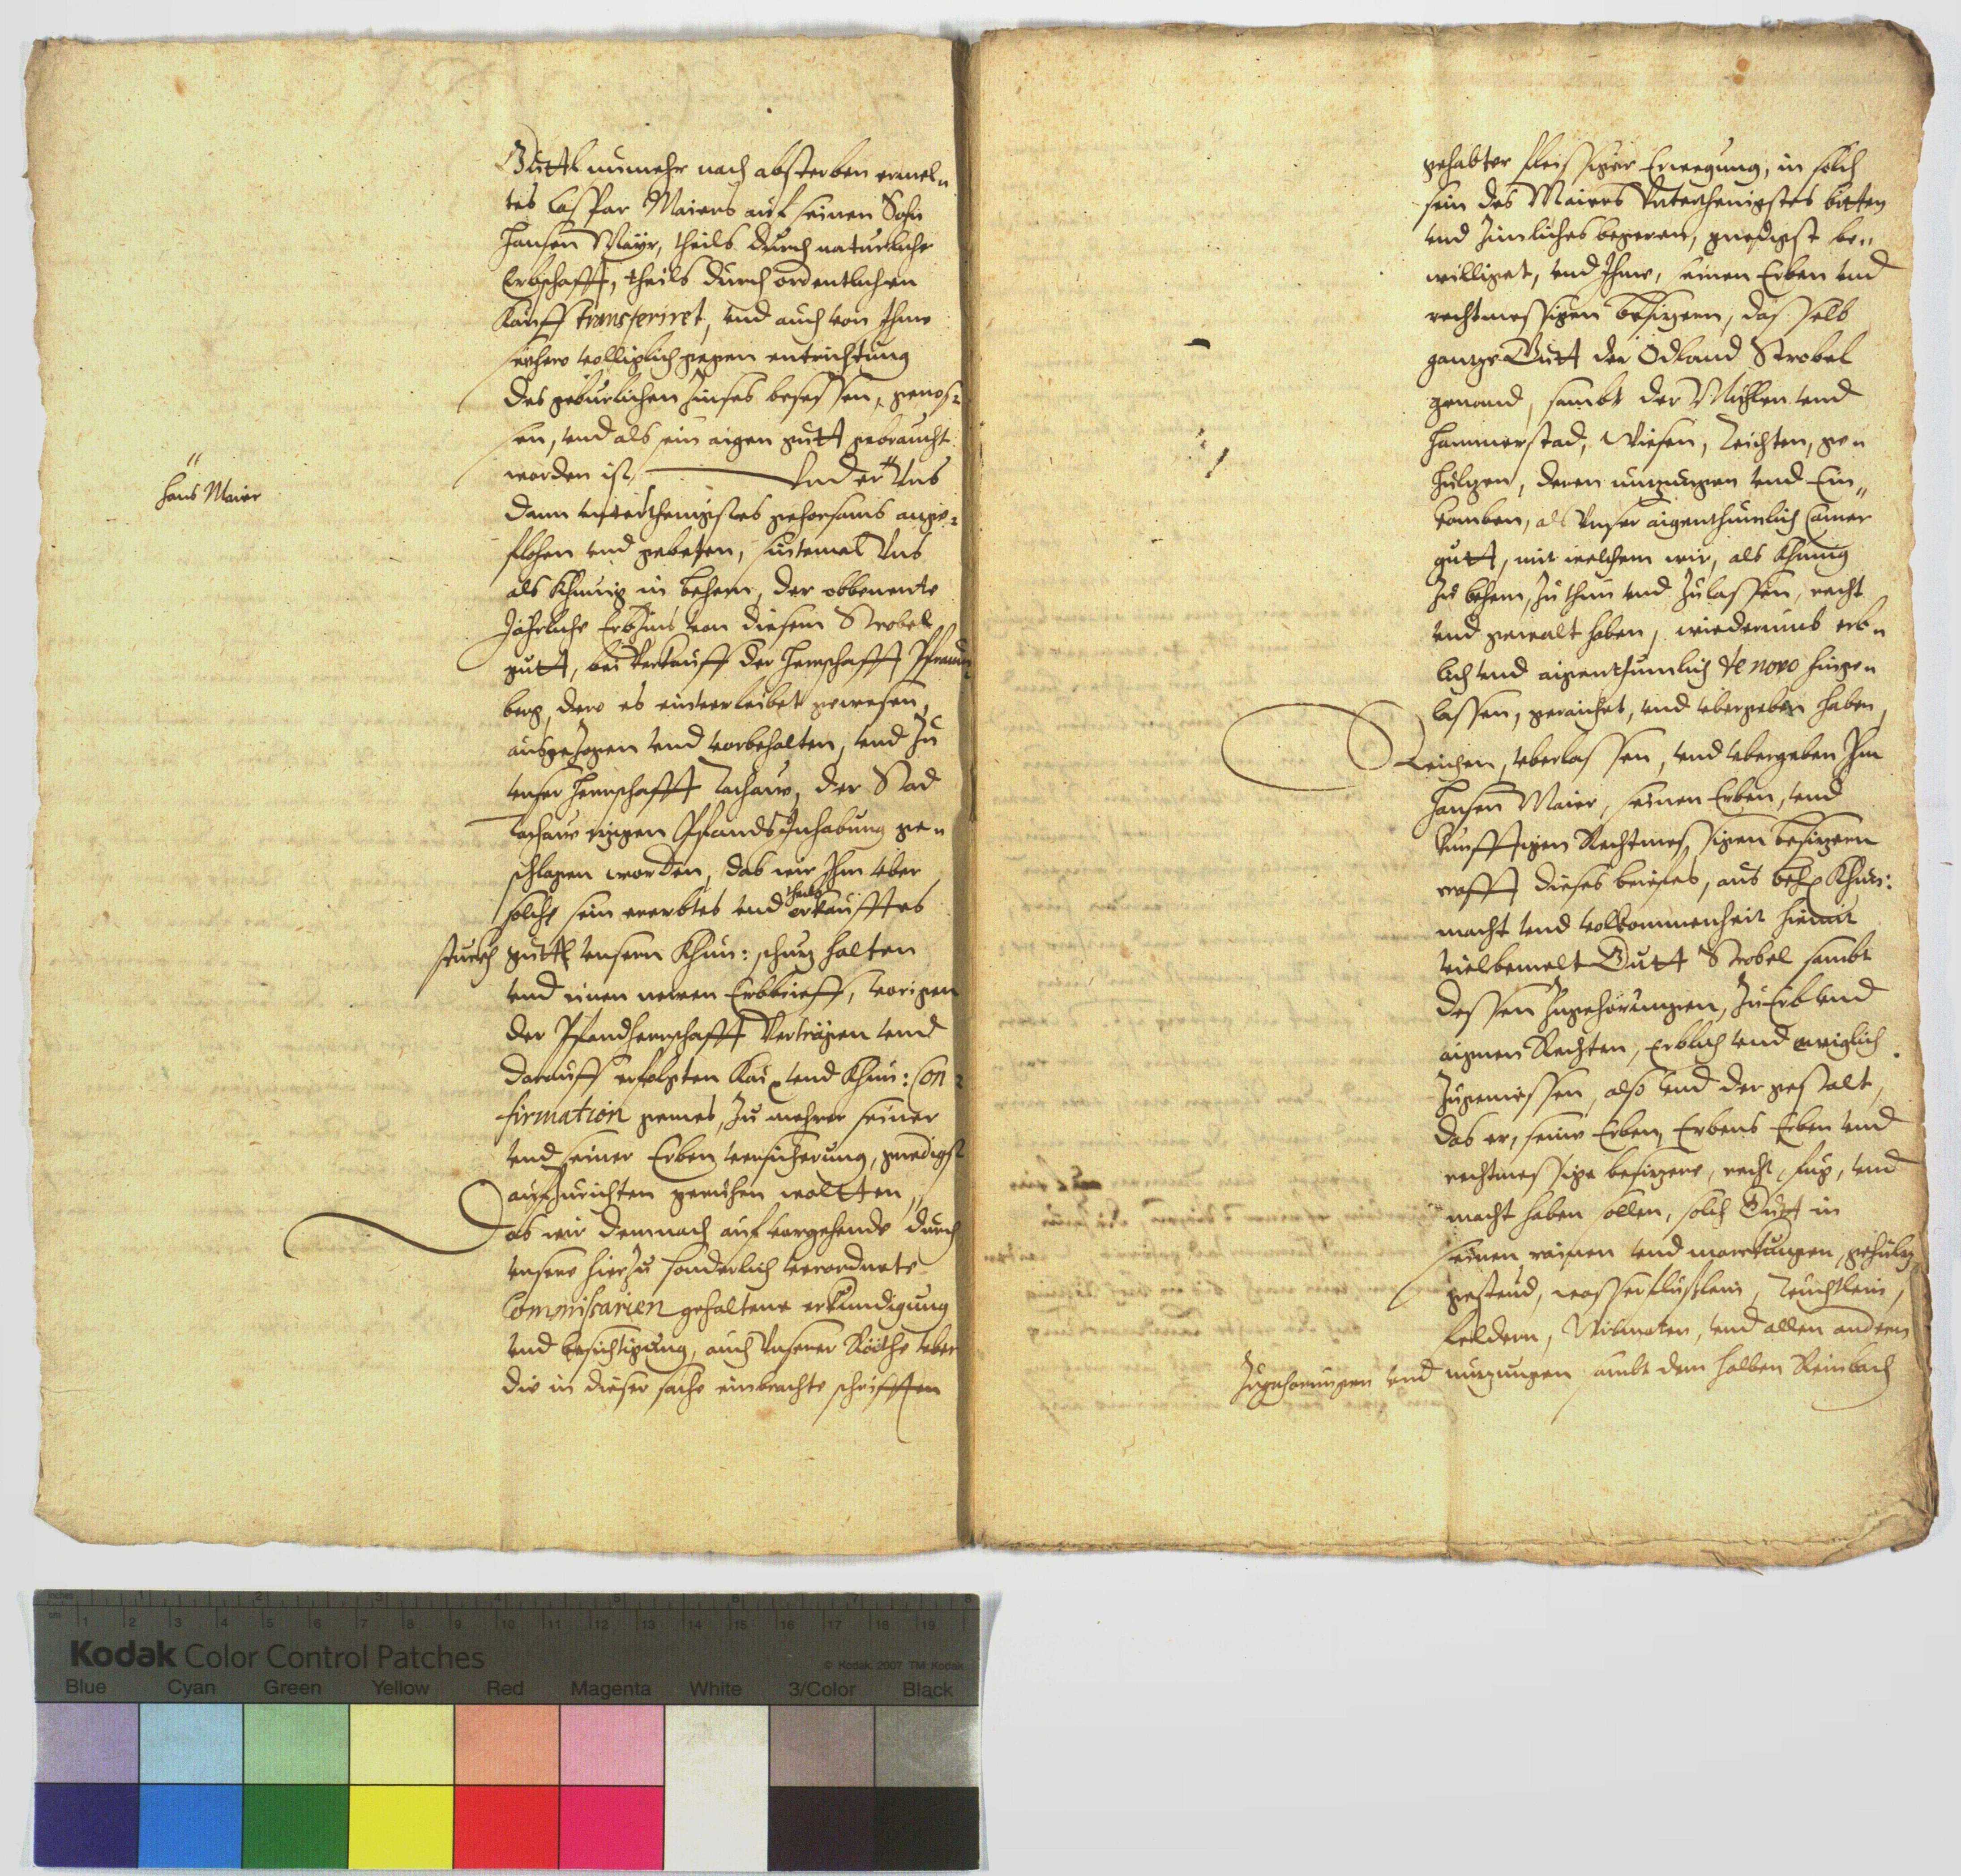 Guttl nunmehr nach absterben ermel-
tes Caspar Maiers auf seinen Sohn
Hansen Mayr, theils durch naturliche
Erbschafft, theils durch ordentlichen
Kauff transferiret, und auch von Ihme
seithero volliglich gegen entrichtung
des geburlichen Zinses besessen, genos-
sen, und als sein aigen gutt gebraucht
worden ist, Und er Uns
Hans Maier
dann unterthenigstes gehorsams ange-
flohen und gebeten, sintemal Uns
als Khunig in Behem, der obbenente
Jährliche Erbzins von diesem Strobel
gutt, bei verkauff der Herrschafft Pfraum-
berg, dero es einverleibet gewesen,
ausgezogen und vorbehalten, und zu
unser Herrschafft Tachaw, der Stad
Tachaw itzigen Pfands Inhabung ge-
schlagen worden, das wir Ihm uber
solch sein ererbtes und theils erkaufftes
stuckh guttl unsern Khun: schuz halten
und einen newen Erbbrieff, vorigen
der Pfandherrschafft Vertrögen und
darauff erfolgten Kay. und Khun: Con-
firmation gemes, zu mehrer seiner
und seiner Erben versicherung, gnedigst
aufzurichten geruhen woltten,
Das wir demnach auf vorgehende durch
unsere hierzu sonderlich verordnete
Commissarien gehaltene erkundigung
und besichtigung, auch Unserer Räthe uber
die in dieser sache einbrachte schrifften
gehabter fleissiger Erwegung, in solch
sein des Maiers Unterthenigstes bitten
und zimliches begeren, gnedigst be-
williget, und Ihme, seinen Erben und
rechtmessigen besizern, das selb
gantze Gutt der Ödland Strobel
genand, sambt der Mühlen und
Hammerstad, Wiesen, Teichten, ge-
hulzen, deren nuzungen und Ein-
komben, als Unser aigenthumlich Camer
gutt, mit welchem wir, als Khunig
zu Behem, zu thun und zulassen, recht
und gewalt haben, wiederumb erb-
lich und aigenthumlich de novo hinge-
lassen, geraichet, und ubergeben haben,
Reichen, uberlassen, und ubergeben Ihm
Hansen Maier, seinen Erben, und
kunfftigen Rechtmessigen besizern
crafft dieses briefes, aus beh. Khun:
macht und volkommenheit hiemit
vielbemelt Gutt Strobel sambt
dessen Zugehörungen, zu Erb und
aignen Rechten, Erblich und ewiglich
zugeniessen, also und der gestalt,
das er, seine Erben, Erbens Erben und
rechtmessige besizere, recht, fug, und
macht haben sollen, solch Gutt in
seinen rainen und marckungen, gehulz,
gesteud, wasserflüslein, Teuchtlein,
Feldern, Wismaten, und allen andern
Zugehorungen und nuzungen sambt dem halben Reinbach